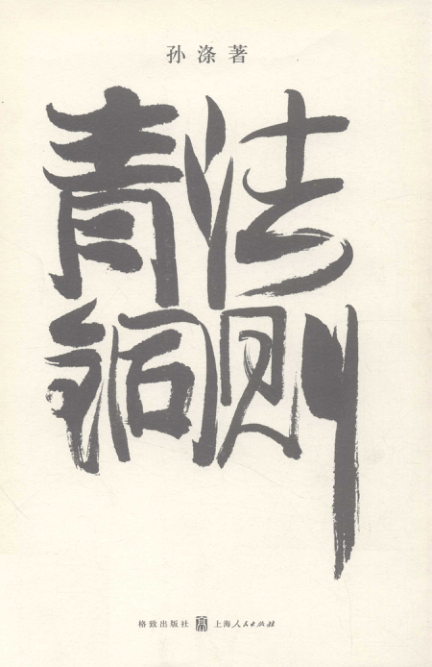 孙涤著
青铜
法则
格致出版社 上海人民出版社